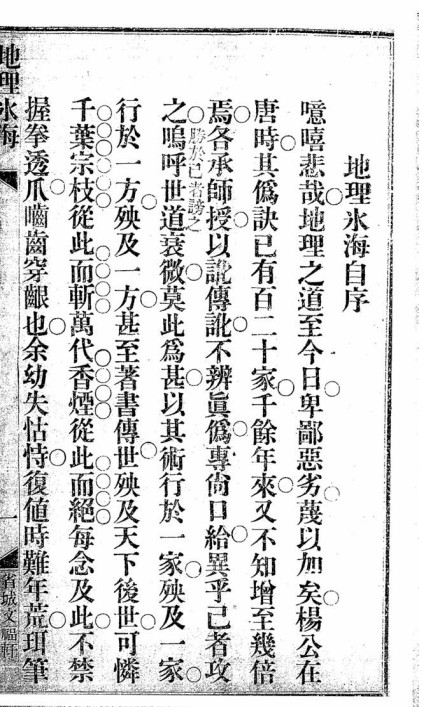 地理氷海自序
噫嘻悲哉地理之道至今日卑鄙惡劣蔑以加矣楊公在
唐時其僞訣已有百二十家千餘年來又不知增至幾倍
焉各承師授以訛傳訛不辨眞僞專尙口給異乎己者攻
之勝於己者謗之嗚呼世道衰微莫此爲甚以其術行於一家殃及一家
行於一方殃及一方甚至著書傳世殃及天下後世可憐
千葉宗枝從此而斬萬代香煙從此而絕每念及此不禁
握拳透爪嚙齒穿齦也余幼失怙恃復値時難年荒珥筆
地理氷海
一
省城文軒